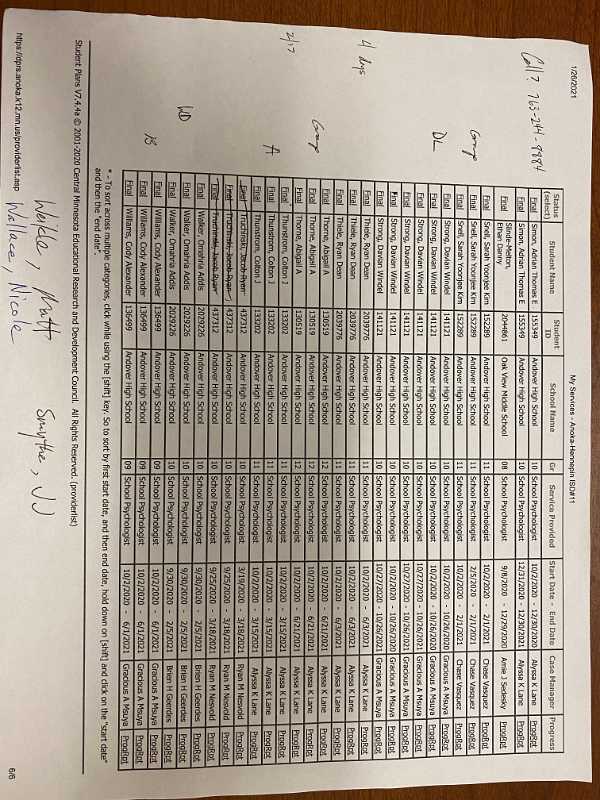 1/26/2021
My Services - Anoka-Hennepin ISD#11
Call? 763-244-9884
Status (select) Student Name Student ID School Name Gr Service Provided Start Date - End Date Case Manager Progress
Final Simon, Adrian Thomas E 155349 Andover High School 10 School Psychologist 10/2/2020 - 12/30/2020 Alyssa K Lane ProgRpt
Final Simon, Adrian Thomas E 155349 Andover High School 10 School Psychologist 12/31/2020 - 12/30/2021 Alyssa K Lane ProgRpt
Final Slinde-Melton, Ethan Danny 2044861 Oak View Middle School 08 School Psychologist 9/8/2020 - 12/29/2020 Amie J ProgRpt
Final Snell, Sarah Yoonjee Kim 152289 Andover High School 11 School Psychologist 10/2/2020 - 2/1/2021 Chase Vasquez ProgRpt
Group Final Snell, Sarah Yoonjee Kim 152289 Andover High School 11 School Psychologist 2/5/2020 - 2/1/2021 Chase Vasquez ProgRpt
Final Snell, Sarah Yoonjee Kim 152289 Andover High School 11 School Psychologist 10/2/2020 - 2/1/2021 Chase Vasquez ProgRpt
DL Final Strong, Davian Windel 141121 Andover High School 10 School Psychologist 10/2/2020 - 10/26/2020 Gracious A Msuya ProgRpt
Final Strong, Davian Windel 141121 Andover High School 10 School Psychologist 10/27/2020 - 10/26/2021 Gracious A Msuya ProgRpt
Final Strong, Davian Windel 141121 Andover High School 10 School Psychologist 10/27/2020 - 10/26/2021 Gracious A Msuya ProgRpt
Final Strong, Davian Windel 141121 Andover High School 10 School Psychologist 10/2/2020 - 10/26/2020 Gracious A Msuya ProgRpt
Final Strong, Davian Windel 141121 Andover High School 10 School Psychologist 10/27/2020 - 10/26/2021 Gracious A Msuya ProgRpt
4 days Final Thiele, Ryan Dean 2039776 Andover High School 11 School Psychologist 10/2/2020 - 6/3/2021 Alyssa K Lane ProgRpt
Final Thiele, Ryan Dean 2039776 Andover High School 11 School Psychologist 10/2/2020 - 6/3/2021 Alyssa K Lane ProgRpt
Final Thiele, Ryan Dean 2039776 Andover High School 11 School Psychologist 10/2/2020 - 6/3/2021 Alyssa K Lane ProgRpt
Group Final Thorne, Abigail A 130519 Andover High School 12 School Psychologist 10/2/2020 - 6/21/2021 Alyssa K Lane ProgRpt
Final Thorne, Abigail A 130519 Andover High School 12 School Psychologist 10/2/2020 - 6/21/2021 Alyssa K Lane ProgRpt
2/17 Final Thorne, Abigail A 130519 Andover High School 12 School Psychologist 10/2/2020 - 6/21/2021 Alyssa K Lane ProgRpt
Final Thunstrom, Colton J 133202 Andover High School 11 School Psychologist 10/2/2020 - 3/15/2021 Alyssa K Lane ProgRpt
A Final Thunstrom, Colton J 133202 Andover High School 11 School Psychologist 10/2/2020 - 3/15/2021 Alyssa K Lane ProgRpt
Final Thunstrom, Colton J 133202 Andover High School 11 School Psychologist 10/2/2020 - 3/15/2021 Alyssa K Lane ProgRpt
Final Jacob Ryan 437312 Andover High School 10 School Psychologist 3/19/2020 - 3/18/2021 Ryan M ProgRpt
Final Jacob Ryan 437312 Andover High School 10 School Psychologist 9/25/2020 - 3/18/2021 Ryan M ProgRpt
Final Jacob Ryan 437312 Andover High School 10 School Psychologist 9/25/2020 - 3/18/2021 Ryan M ProgRpt
Final Walker, Omahria Addis 2029226 Andover High School 10 School Psychologist 9/30/2020 - 2/5/2021 Brien H Goerdes ProgRpt
WD Final Walker, Omahria Addis 2029226 Andover High School 10 School Psychologist 9/30/2020 - 2/5/2021 Brien H Goerdes ProgRpt
Final Walker, Omahria Addis 2029226 Andover High School 10 School Psychologist 9/30/2020 - 2/5/2021 Brien H Goerdes ProgRpt
Final Williams, Cody Alexander 136499 Andover High School 09 School Psychologist 10/2/2020 - 6/1/2021 Gracious A Msuya ProgRpt
B Final Williams, Cody Alexander 136499 Andover High School 09 School Psychologist 10/2/2020 - 6/1/2021 Gracious A Msuya ProgRpt
Final Williams, Cody Alexander 136499 Andover High School 09 School Psychologist 10/2/2020 - 6/1/2021 Gracious A Msuya ProgRpt
* - To sort across multiple categories, click while using the [shift] key. So to sort by first start date, and then end date, hold down on [shift] and click on the "start date"
and then the "end date".
Student Plans V7.4.4a © 2001-2020 Central Minnesota Educational Research and Development Council. All Rights Reserved. (providerlist)
Weikle, Matt
Smythe, JJ
Wallace, Nicole
https://dprs.anoka.k12.mn.us/providerlist.asp
6/6